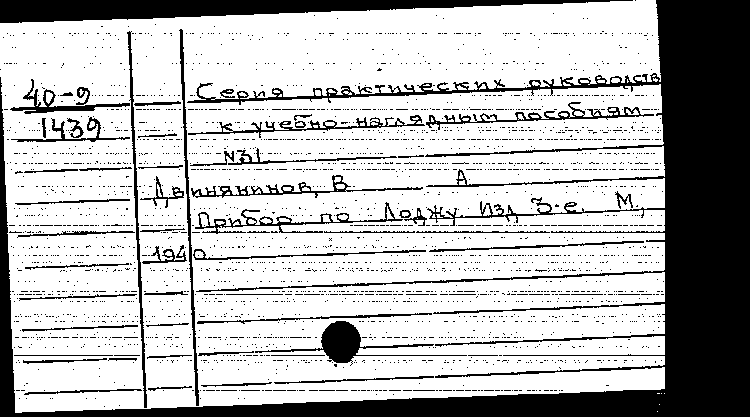 40-9
1439
Серия практических руководств
к учебно-наглядным пособиям
N31
Двинянинов, В А
Прибор по Лоджу. Изд. 3-е. М.,
1940